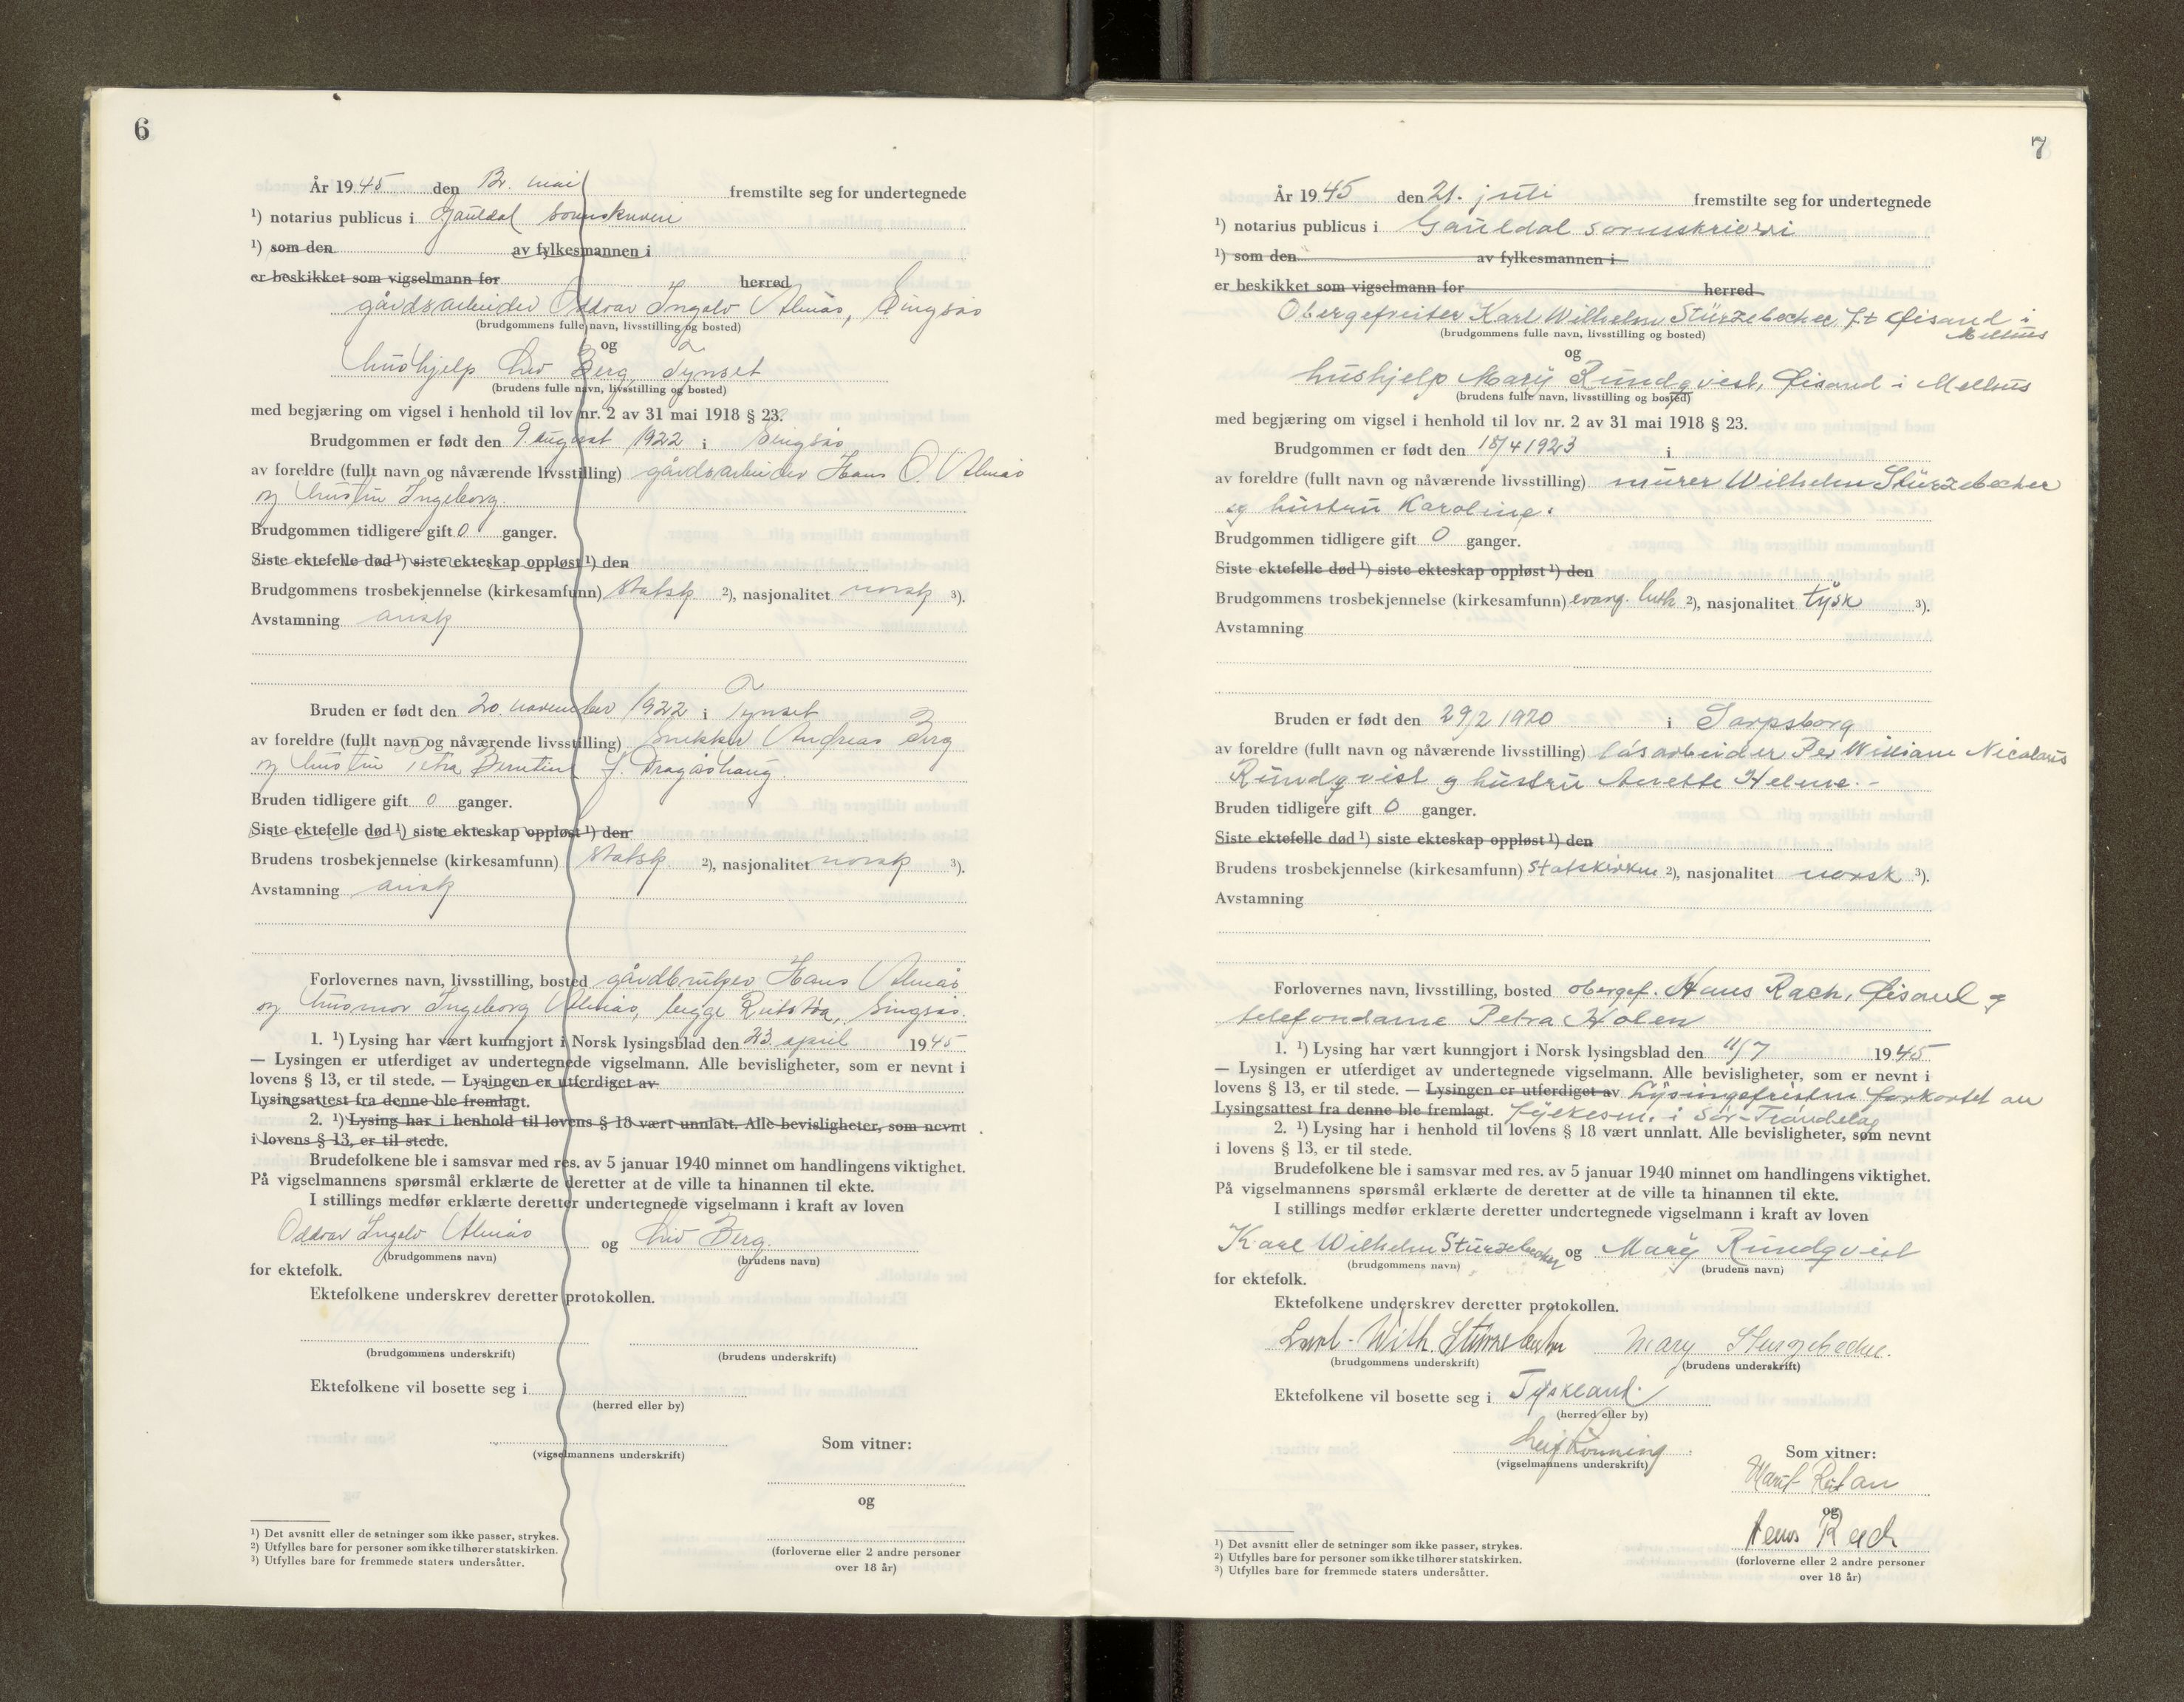 6
År 1945 den 12. mai fremstilte seg for undertegnede
¹) notarius publicus i Gauldal sorenskriveri
¹) som den av fylkesmannen i
er beskikket som vigselmann for herred
gårdsarbeider Oddvar Ingolv Almås, Singsås
(brudgommens fulle navn, livsstilling og bosted)
og
hushjelp Liv Berg, Tynset
(brudens fulle navn, livsstilling og bosted)
med begjæring om vigsel i henhold til lov nr. 2 av 31 mai 1918 § 23.
Brudgommen er født den 9. august 1922 i Singsås
av foreldre (fullt navn og nåværende livsstilling) gårdsarbeider Hans O. Almås
og hustru Ingeborg.
Brudgommen tidligere gift 0 ganger.
Siste ektefelle død ¹) siste ekteskap oppløst ¹) den
Brudgommens trosbekjennelse (kirkesamfunn) statsk ²), nasjonalitet norsk ³).
Avstamning arisk
Bruden er født den 20. november 1922 i Tynset
av foreldre (fullt navn og nåværende livsstilling) snekker Andreas Berg
og hustru Petra Berntine f. Dragåshaug.
Bruden tidligere gift 0 ganger.
Siste ektefelle død ¹) siste ekteskap oppløst ¹) den
Brudens trosbekjennelse (kirkesamfunn) statsk. ²), nasjonalitet norsk ³).
Avstamning arisk
Forlovernes navn, livsstilling, bosted gårdbruker Hans Almås
og husmor Ingeborg Almås, begge Singsås.
1. ¹) Lysing har vært kunngjort i Norsk lysingsblad den 23. april 1945
— Lysingen er utferdiget av undertegnede vigselmann. Alle bevisligheter, som er nevnt i
lovens § 13, er til stede. — Lysingen er utferdiget av
Lysingsattest fra denne ble fremlagt.
2. ¹) Lysing har i henhold til lovens § 18 vært unnlatt. Alle bevisligheter, som nevnt
i lovens § 13, er til stede.
Brudefolkene ble i samsvar med res. av 5 januar 1940 minnet om handlingens viktighet.
På vigselmannens spørsmål erklærte de deretter at de ville ta hinannen til ekte.
I stillings medfør erklærte deretter undertegnede vigselmann i kraft av loven
Oddvar Ingolv Almås og Liv Berg.
(brudgommens navn) (brudens navn)
for ektefolk.
Ektefolkene underskrev deretter protokollen.
(brudgommens underskrift) (brudens underskrift)
Ektefolkene vil bosette seg i
(herred eller by)
Som vitner:
(vigselmannens underskrift)
og
¹) Det avsnitt eller de setninger som ikke passer, strykes.
²) Utfylles bare for personer som ikke tilhører statskirken.
³) Utfylles bare for fremmede staters undersåtter.
(forloverne eller 2 andre personer
over 18 år)
7
År 1945 den 21. juli fremstilte seg for undertegnede
¹) notarius publicus i Gauldal sorenskriveri
¹) som den av fylkesmannen i
er beskikket som vigselmann for herred
Obergefreiter Karl Wilhelm Stürzebecher, f.t. Øisand i
Melhus
(brudgommens fulle navn, livsstilling og bosted)
og
hushjelp Mary Rundqvist, Øisand i Melhus
(brudens fulle navn, livsstilling og bosted)
med begjæring om vigsel i henhold til lov nr. 2 av 31 mai 1918 § 23.
Brudgommen er født den 18/4 1923 i
av foreldre (fullt navn og nåværende livsstilling) murer Wilhelm Stürzebecher
og hustru Karoline.
Brudgommen tidligere gift 0 ganger.
Siste ektefelle død ¹) siste ekteskap oppløst ¹) den
Brudgommens trosbekjennelse (kirkesamfunn) evang. luth ²), nasjonalitet tysk ³).
Avstamning
Bruden er født den 29/2 1920 i Sarpsborg
av foreldre (fullt navn og nåværende livsstilling) løsarbeider Per William Nicolaus
Rundqvist og hustru Anette Helene. -
Bruden tidligere gift 0 ganger.
Siste ektefelle død ¹) siste ekteskap oppløst ¹) den
Brudens trosbekjennelse (kirkesamfunn) statskirken ²), nasjonalitet norsk ³).
Avstamning
Forlovernes navn, livsstilling, bosted obergef. Hans Rach, Øisand og
telefondame Petra Holen
1. ¹) Lysing har vært kunngjort i Norsk lysingsblad den 11/7 1945
— Lysingen er utferdiget av undertegnede vigselmann. Alle bevisligheter, som er nevnt i
lovens § 13, er til stede. — Lysingen er utferdiget av Lysingsfristen forkortet av
Lysingsattest fra denne ble fremlagt. fylkesm. i Sør-Trøndelag
2. ¹) Lysing har i henhold til lovens § 18 vært unnlatt. Alle bevisligheter, som nevnt
i lovens § 13, er til stede.
Brudefolkene ble i samsvar med res. av 5 januar 1940 minnet om handlingens viktighet.
På vigselmannens spørsmål erklærte de deretter at de ville ta hinannen til ekte.
I stillings medfør erklærte deretter undertegnede vigselmann i kraft av loven
Karl Wilhelm Stürzebecher og Mary Rundqvist
(brudgommens navn) (brudens navn)
for ektefolk.
Ektefolkene underskrev deretter protokollen.
Karl-Wilh. Stürzebecher Mary Sturzebecher.
(brudgommens underskrift) (brudens underskrift)
Ektefolkene vil bosette seg i Tyskland.
(herred eller by)
Leif Rønning
(vigselmannens underskrift)
Som vitner:
Marit
og
Hans Rach
¹) Det avsnitt eller de setninger som ikke passer, strykes.
²) Utfylles bare for personer som ikke tilhører statskirken.
³) Utfylles bare for fremmede staters undersåtter.
(forloverne eller 2 andre personer
over 18 år)